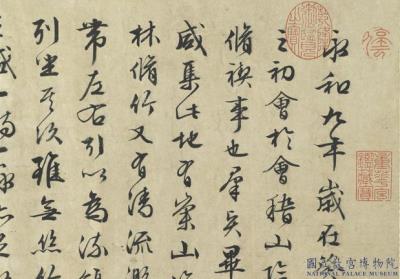 永和九年歲在
之初會於會稽山
脩禊事也羣賢畢
咸集此地有崇山
林脩竹又有清流
帶左右引以為流
列坐其次雖無絲
盛一觴一詠亦足
重華宮鑑藏寶
國立故宮博物院
NATIONAL PALACE MUSEUM